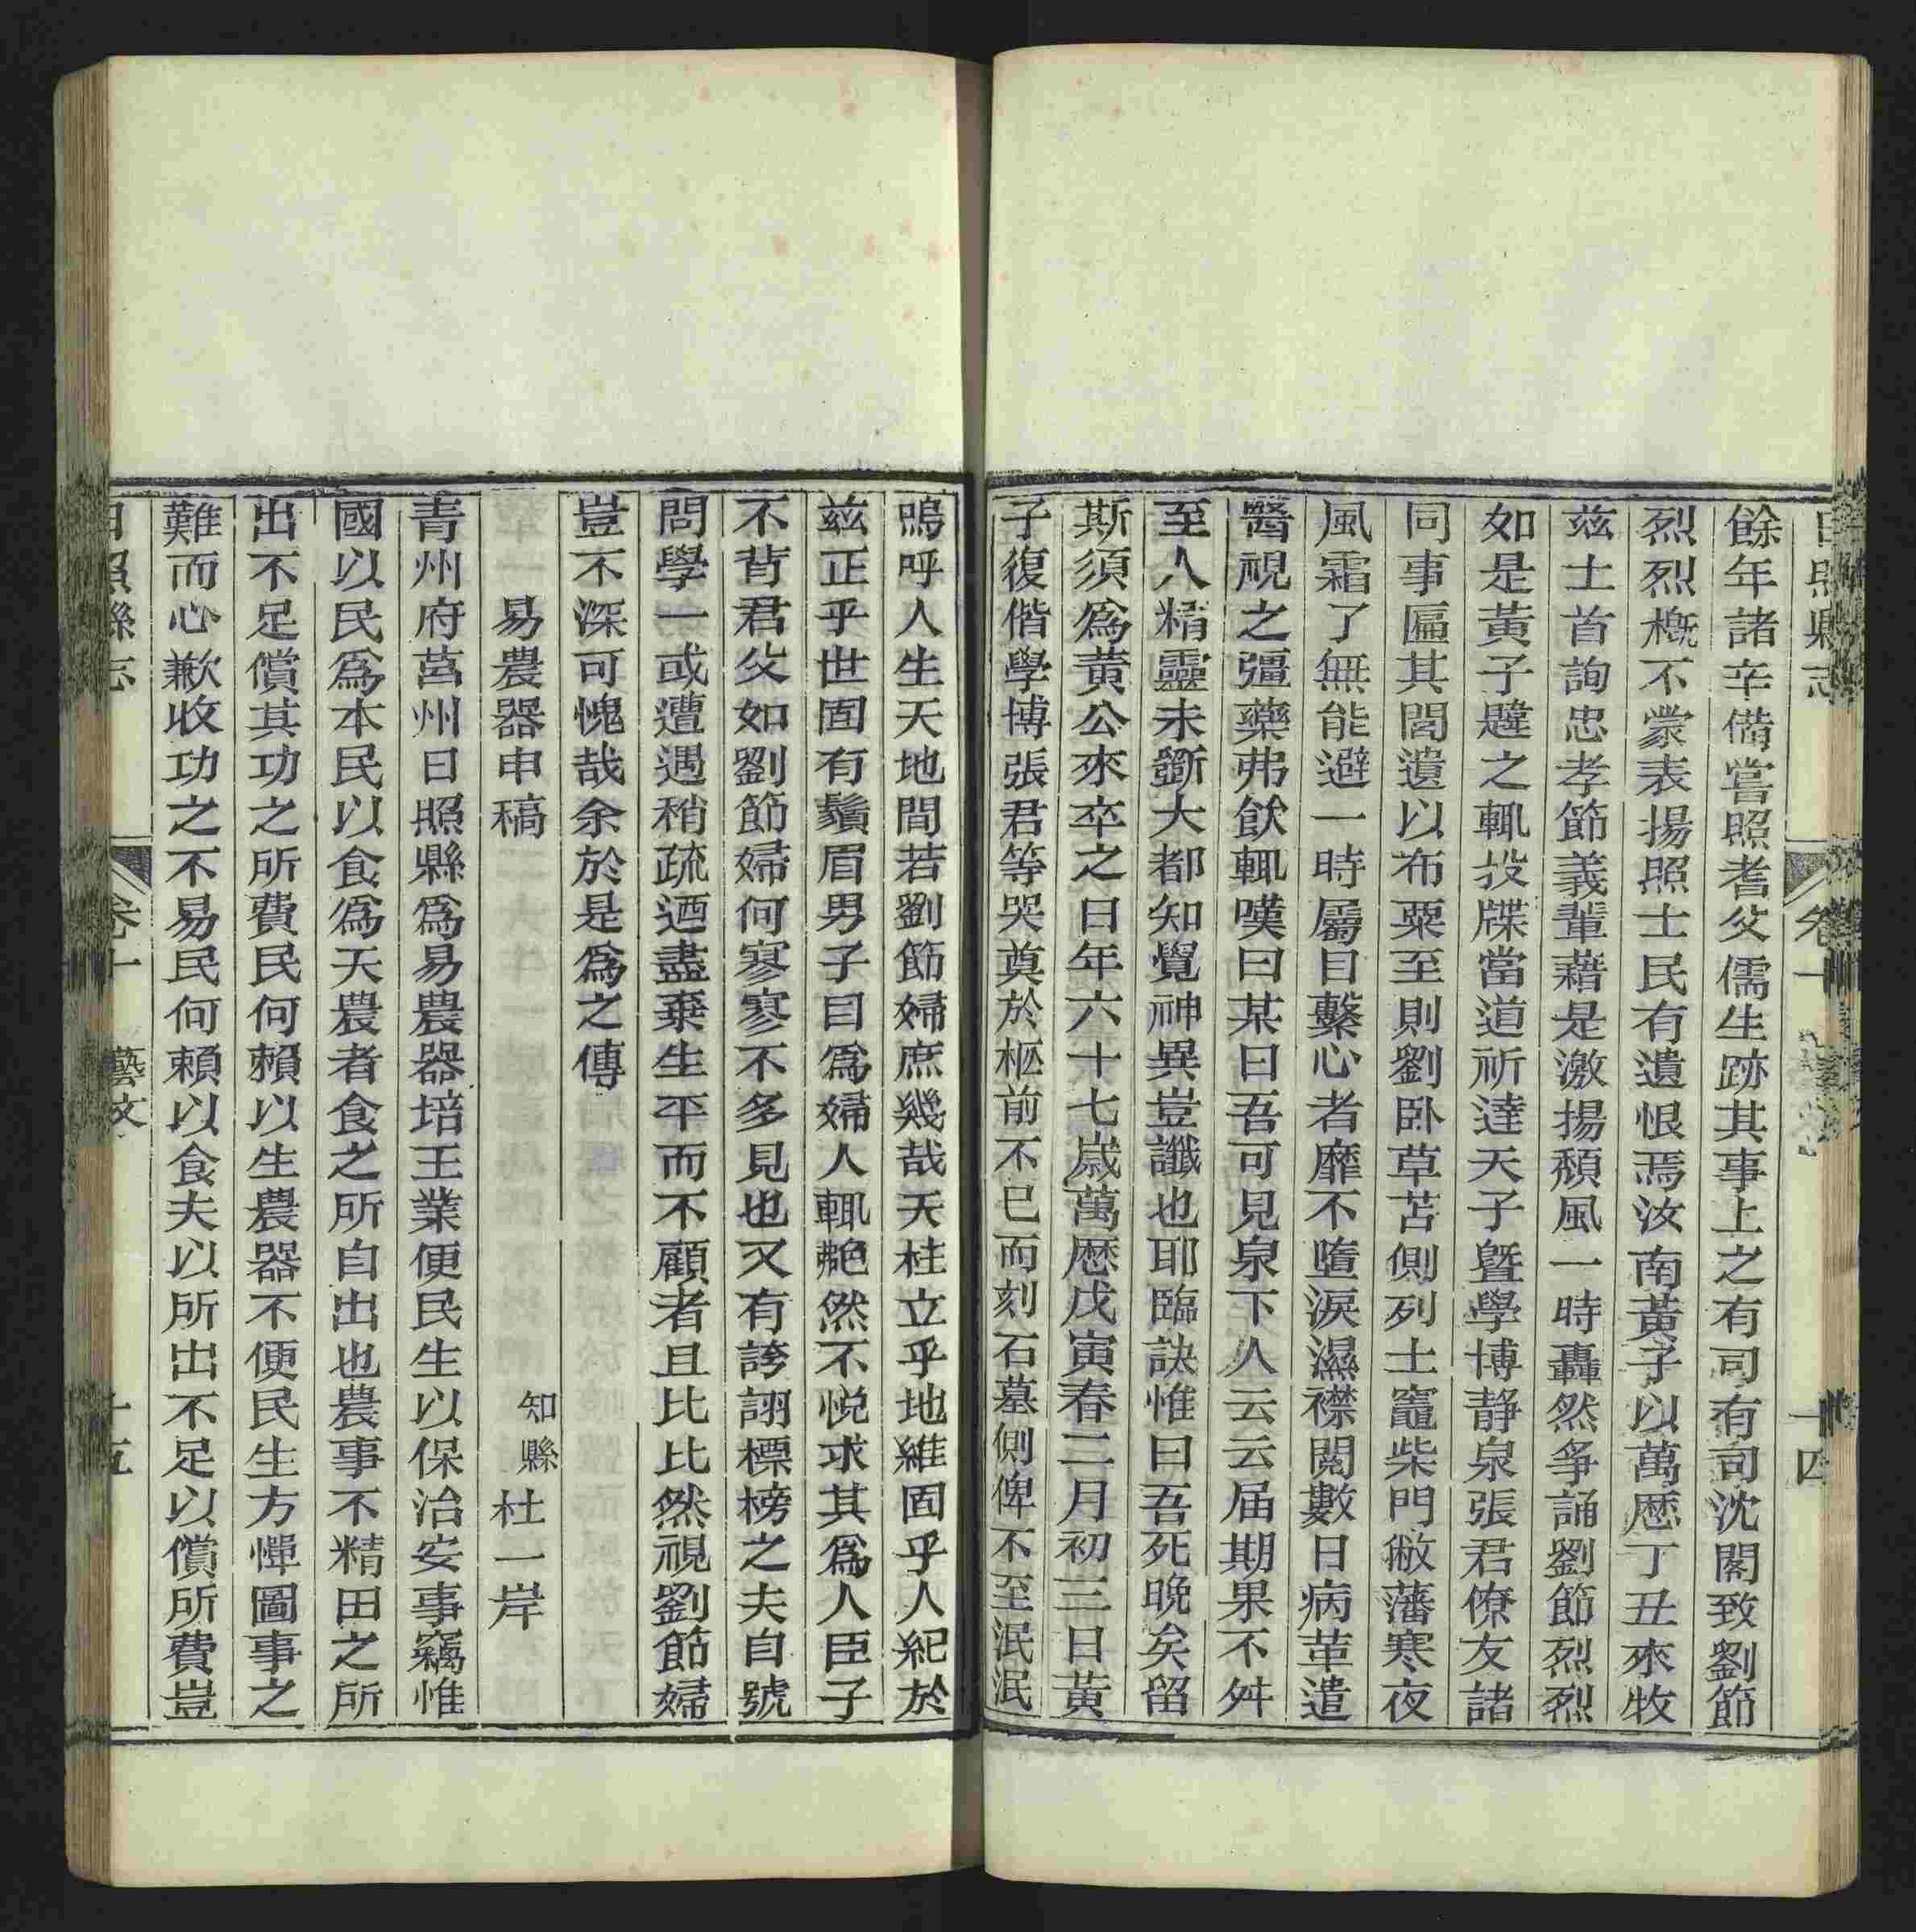 日照縣志 卷十 十四
餘年諸辛備嘗照耆父儒生跡其事上之有司有司沈閣致劉節
烈烈槪不蒙表揚照士民有遺恨焉汝南黃子以萬歷丁丑來牧
兹土首詢忠孝節義輩藉是激揚頹風一時轟然爭誦劉節烈烈
如是黃子韙之輒投牒當道祈達天子曁學博靜泉張君僚友諸
同事匾其閭遺以布粟至則劉卧草苫側列土竈柴門敝藩寒夜
風霜了無能避一時屬目繫心者靡不墮淚濕襟閱數日病革遣
醫視之彊藥弗飮輒嘆曰某日吾可見泉下人云云届期果不舛
至人精靈未斵大都知覺神異豈讖也耶臨訣惟曰吾死晚矣留
斯須爲黃公來卒之日年六十七歲萬歷戊寅春二月初三日黃
子復偕學博張君等哭奠於柩前不已而刻石墓側俾不至泯泯
嗚呼人生天地間若劉節婦庶幾哉天柱立乎地維固乎人紀於
兹正乎世固有鬚眉男子目爲婦人輒艴然不悅求其爲人臣子
不背君父如劉節婦何寥寥不多見也又有誇詡標榜之夫自號
問學一或遭遇稍疏迺盡棄生平而不顧者且比比然視劉節婦
豈不深可愧哉余於是爲之傳
易農器申稿 知縣杜一岸
青州府莒州日照縣爲易農器培王業便民生以保治安事竊惟
國以民爲本民以食爲天農者食之所自出也農事不精田之所
出不足償其功之所費民何賴以生農器不便民生方憚圖事之
難而心歉收功之不易民何賴以食夫以所出不足以償所費豈
日照縣志 卷十 藝文 十五